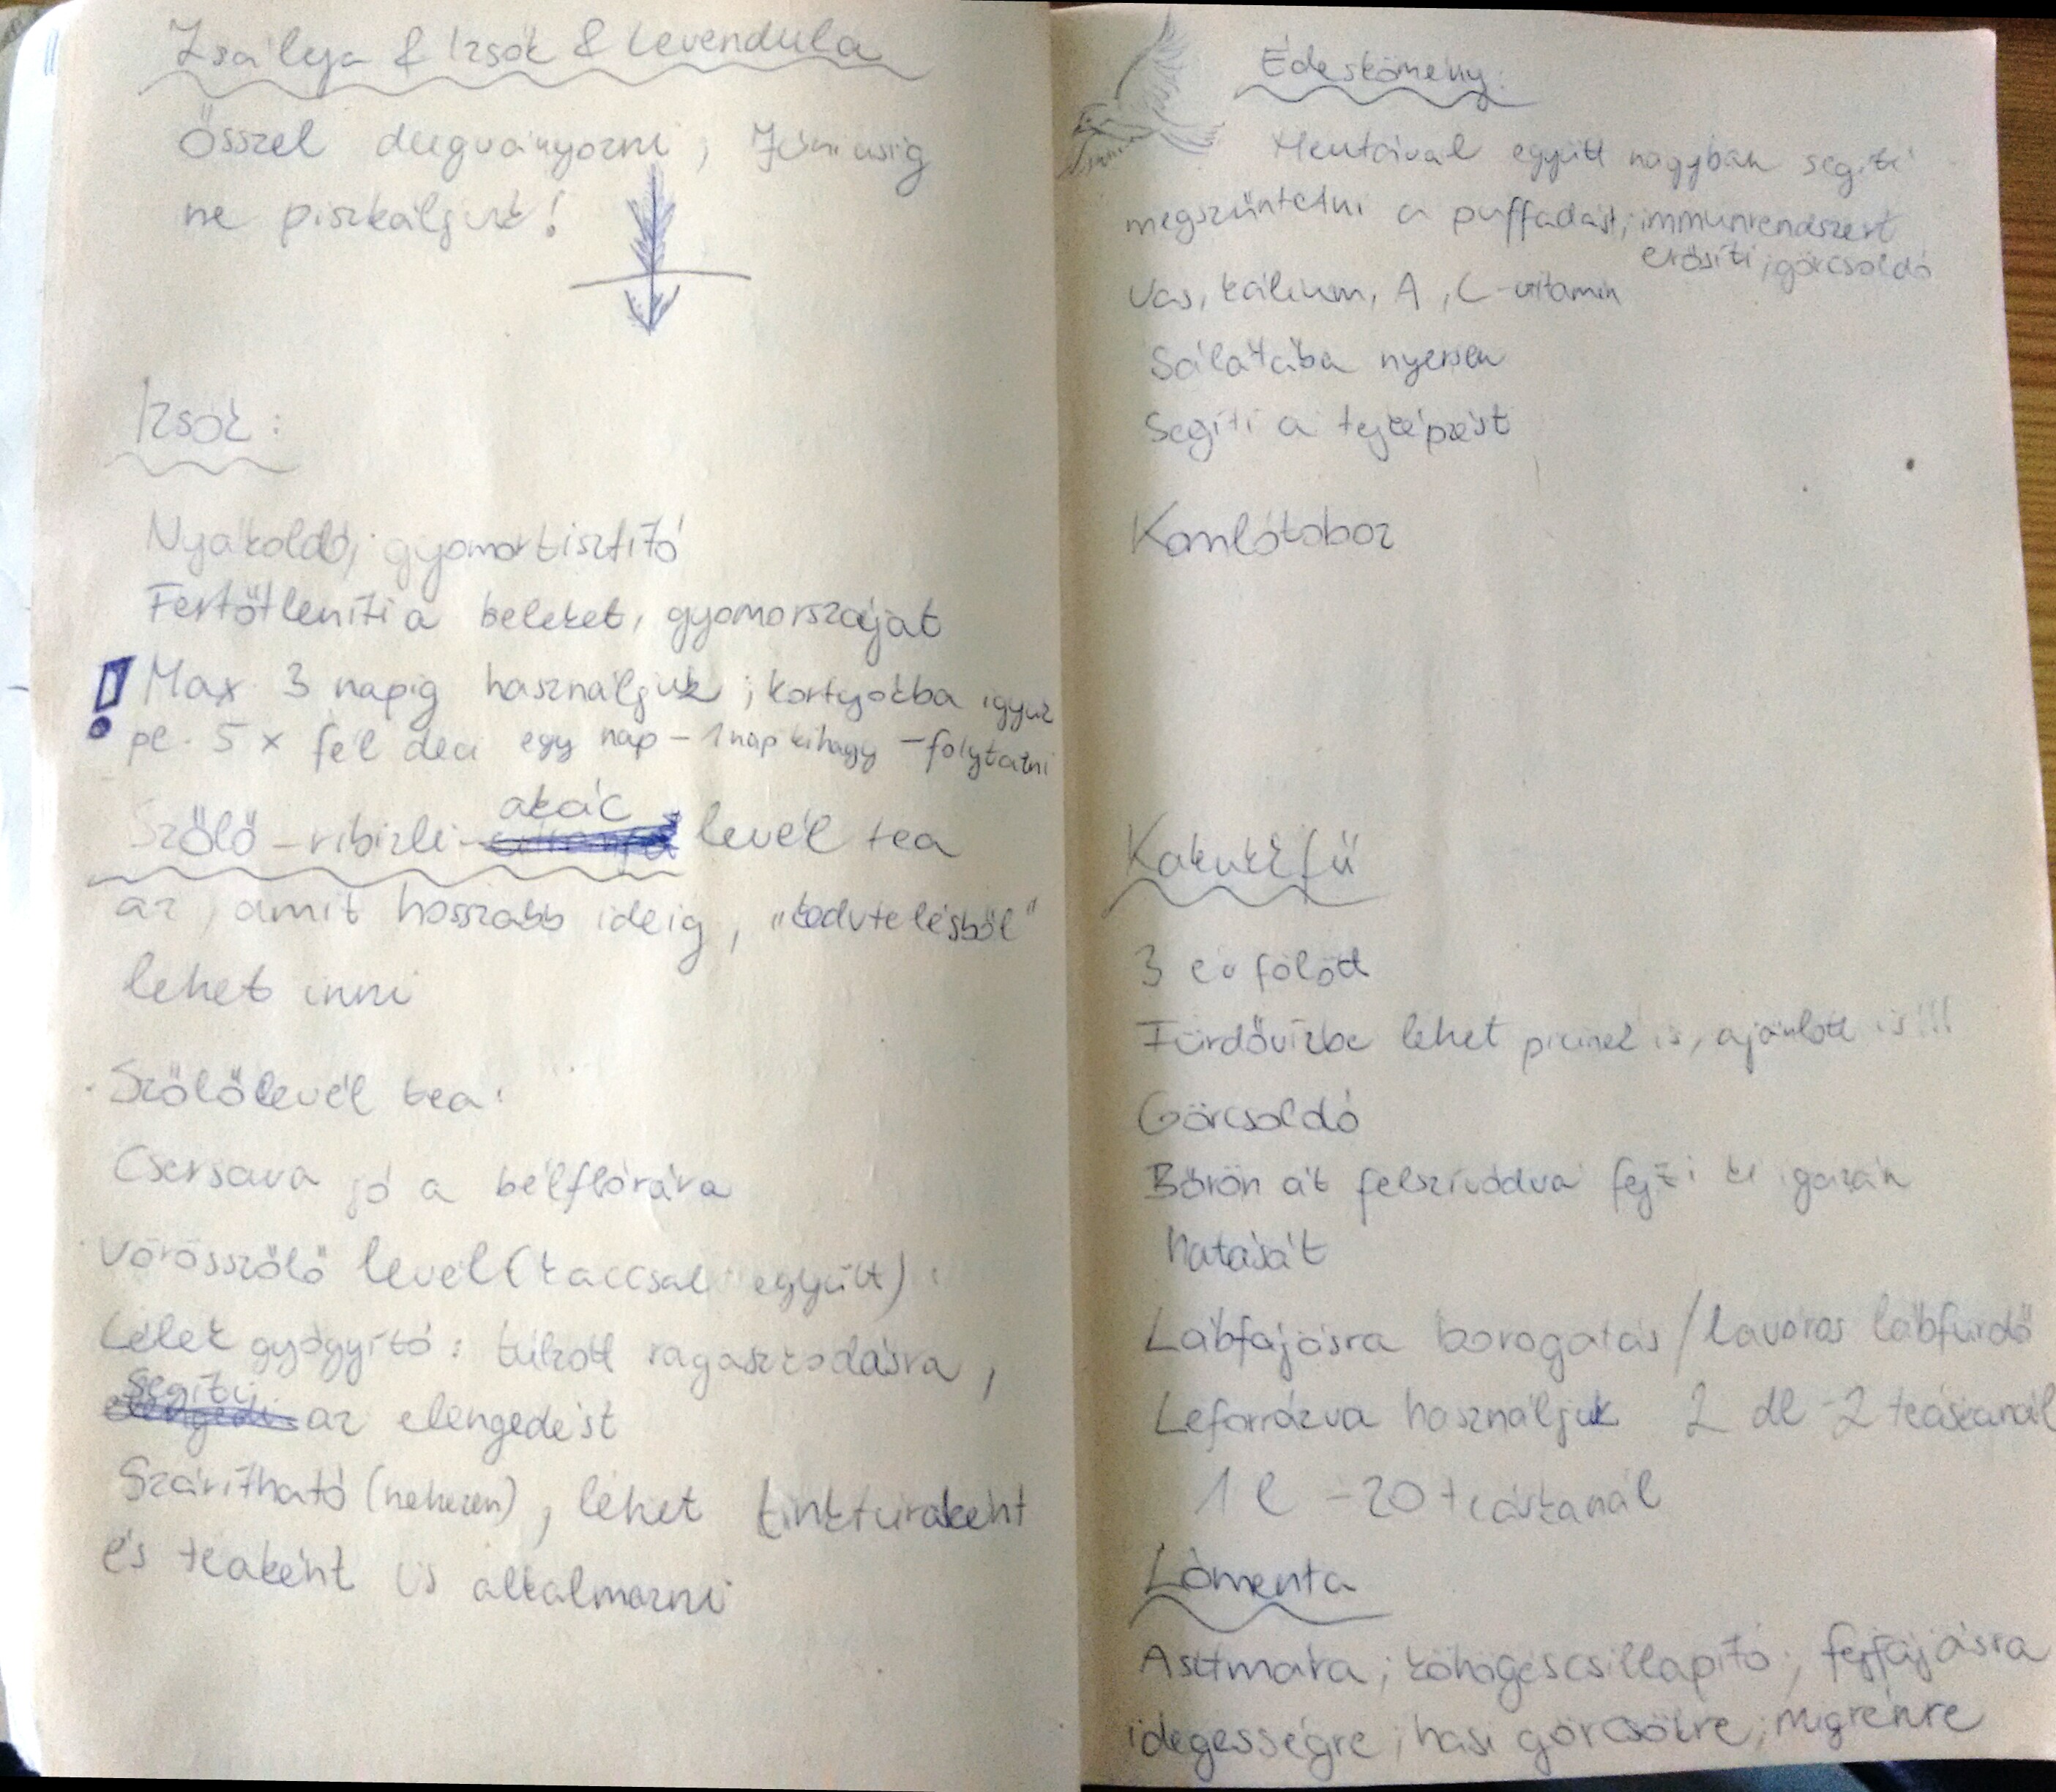 Zsálya & Izsóp & Levendula
Ősszel dugványozni, Júniusig
ne piszkáljuk!
Izsóp:
Nyákoldó, gyomortisztító
Fertőtleníti a beleket, gyomorszájat
! Max 3 napig használjuk; kortyokba igyuk
pl. 5 x fél deci egy nap - 1 nap kihagy - folytatni
akác
Szőlő - ribizli - levél tea
az, amit hosszabb ideig, "kedvtelésből"
lehet inni
Szőlőlevél tea:
Csersava jó a bélflórára
Vörösszőlő levél (kaccsal együtt):
Lélek gyógyító: túlzott ragaszkodásra,
segíti
az elengedést
Szárítható (nehezen), lehet tinktúraként
és teaként is alkalmazni
Édeskömény:
Mentával együtt nagyban segíti
megszűntetni a puffadást, immunrendszert
erősíti, görcsoldó
Vas, kálium, A, C-vitamin
Salátába nyersen
Segíti a tejképzést
Komlótoboz
Kakukkfű
3 év fölött
Fürdővízbe lehet picinek is, ajánlott is!!!
Görcsoldó
Bőrön át felszívódva fejti ki igazán
hatását
Lábfájásra borogatás / lavóros lábfürdő
Leforrázva használjuk 2 dl - 2 teáskanál
1 l - 20 teáskanál
Lómenta
Asztmára; köhögéscsillapító; fejfájásra
idegességre; hasi görcsökre; migrénre